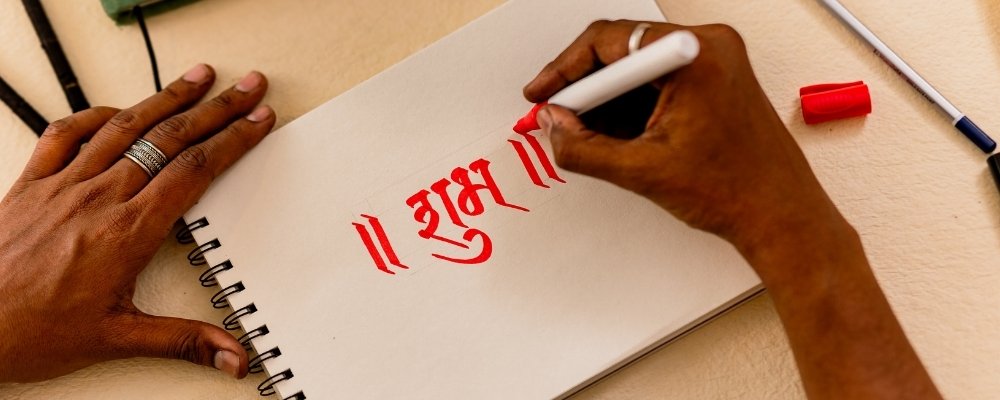 ॥ शुभ ॥